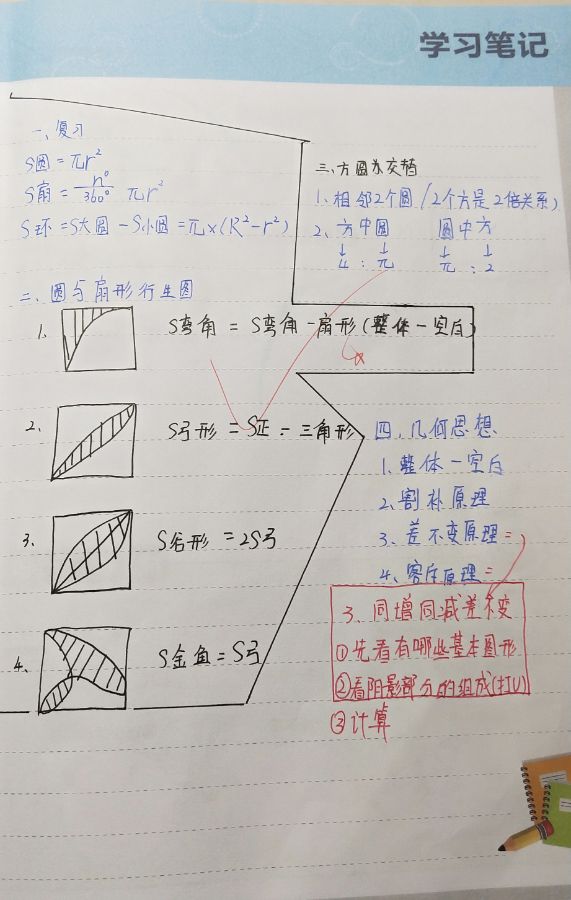 学习笔记
一、复习
S圆 = πr²
S扇 = n°/360° πr²
S环 = S大圆 - S小圆 = π×(R²-r²)
二、圆与扇形衍生图
1. S弯角 = S弯角 - 扇形(整体-空白)
2、 S弓形 = S正 - 三角形
3、 S谷形 = 2S弓
4、 S金鱼 = S弓
三、方圆大交替
1、相邻2个圆/2个方是2倍关系)
2、方中圆 圆中方
↓ ↓ ↓ ↓
4 : π π : 2
四、几何思想
1、整体-空白
2、割补原理
3、差不变原理=
4、容斥原理=
3、同增同减差不变
①先看有哪些基本图形
②看阴影部分的组成(打U)
③计算